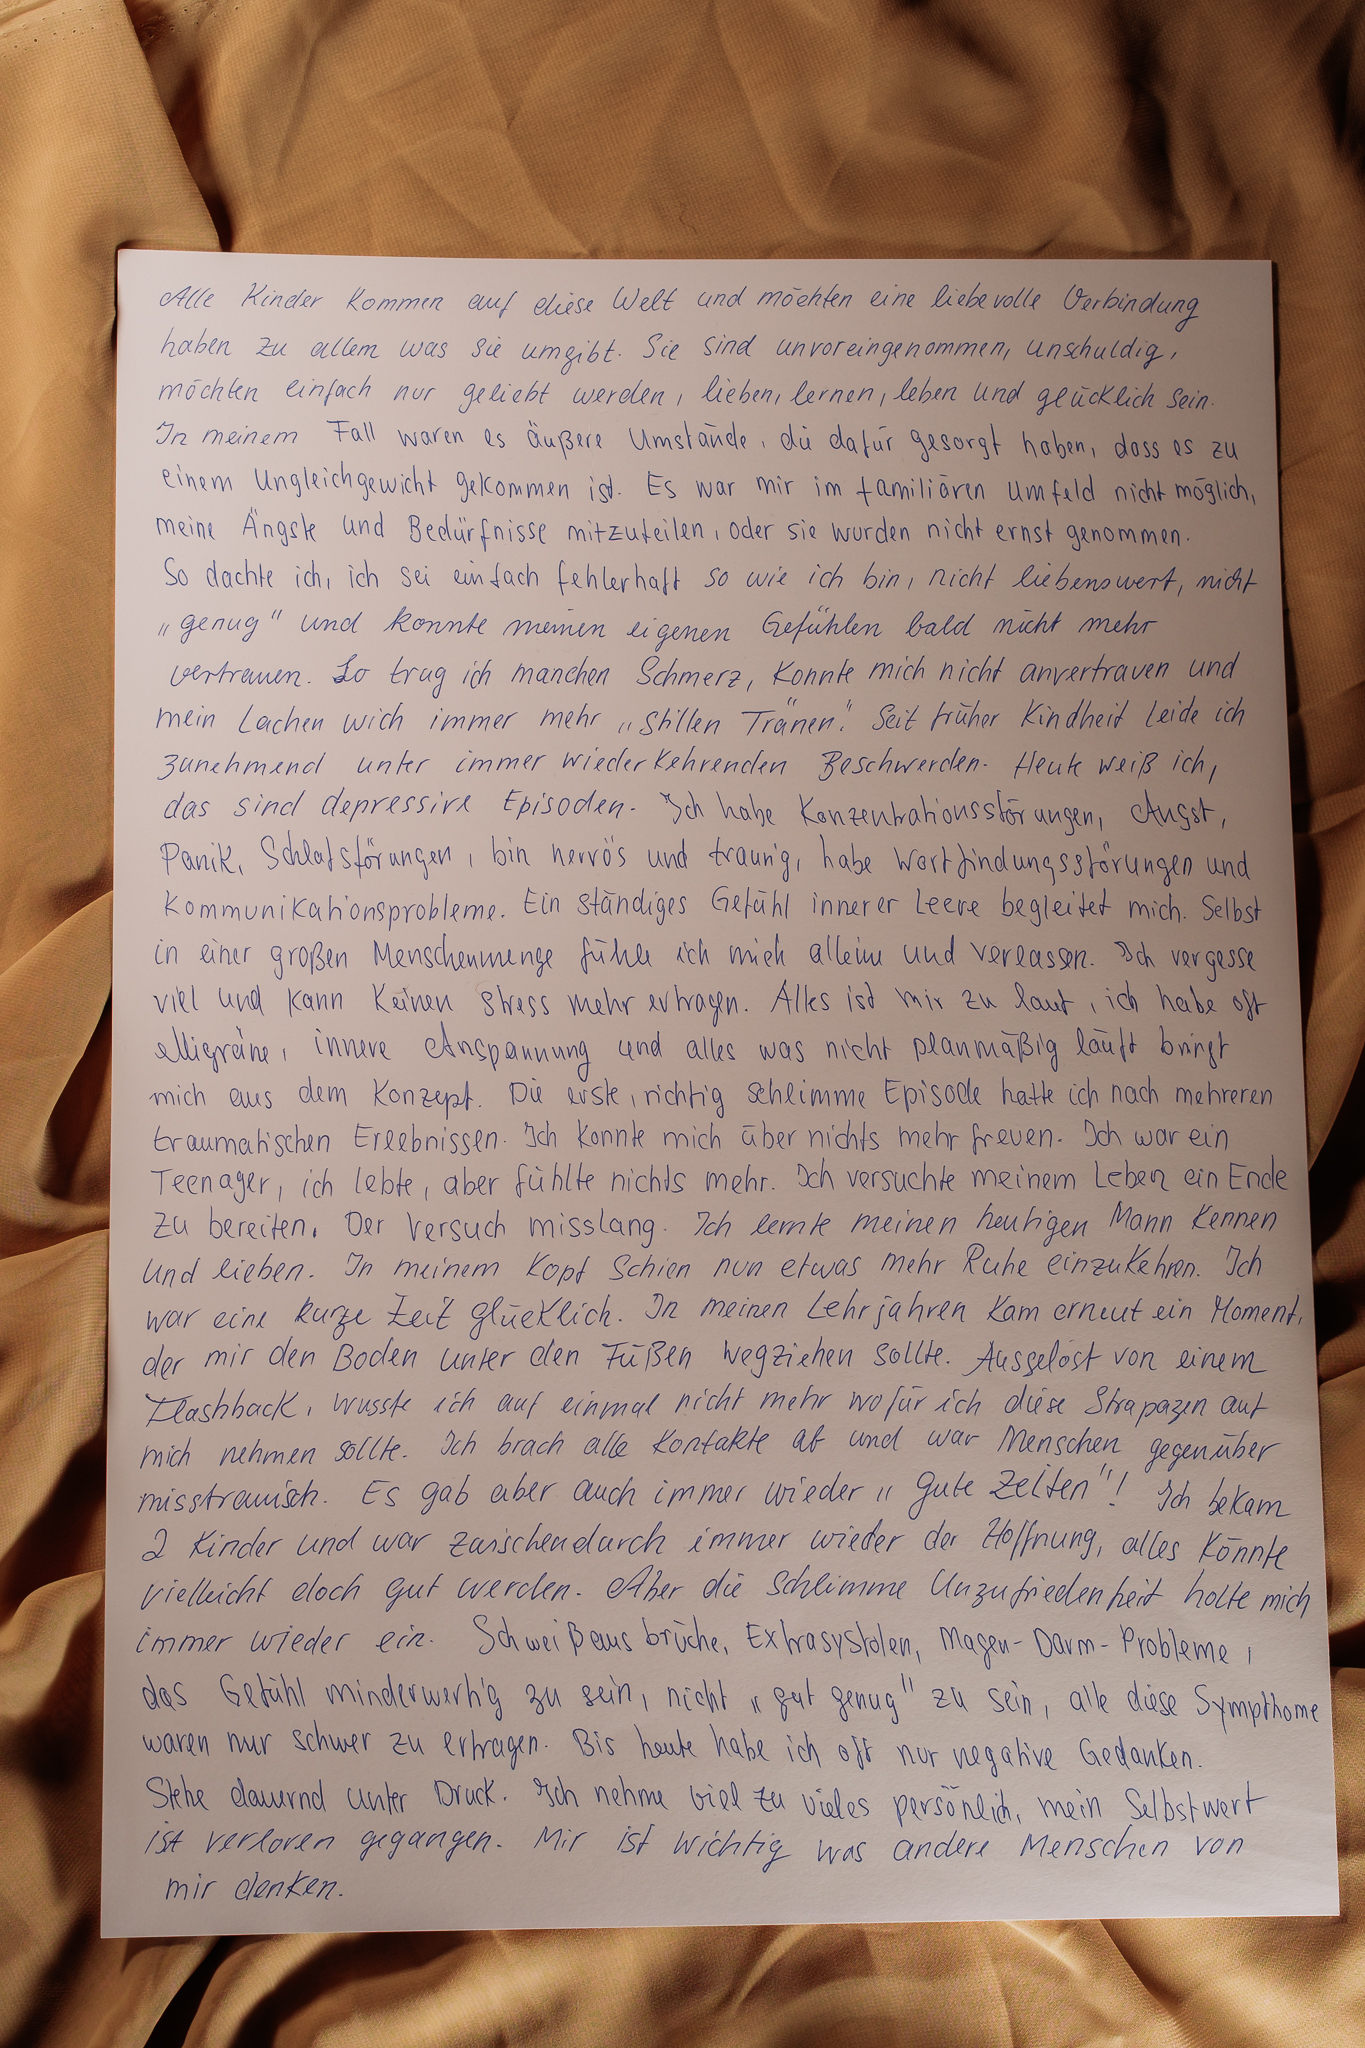 Alle Kinder kommen auf diese Welt und möchten eine liebevolle Verbindung
haben zu allem was sie umgibt. Sie sind unvoreingenommen, unschuldig,
möchten einfach nur geliebt werden, lieben, lernen, leben und glücklich sein.
In meinem Fall waren es äußere Umstände, die dafür gesorgt haben, dass es zu
einem Ungleichgewicht gekommen ist. Es war mir im familiären Umfeld nicht möglich,
meine Ängste und Bedürfnisse mitzuteilen, oder sie wurden nicht ernst genommen.
So dachte ich, ich sei einfach fehlerhaft so wie ich bin, nicht liebenswert, nicht
„genug" und konnte meinen eigenen Gefühlen bald nicht mehr
vertrauen. So trug ich manchen Schmerz, konnte mich nicht anvertrauen und
mein Lachen wich immer mehr „stillen Tränen". Seit früher Kindheit leide ich
zunehmend unter immer wiederkehrenden Beschwerden. Heute weiß ich,
das sind depressive Episoden. Ich habe Konzentrationsstörungen, Angst,
Panik, Schlafstörungen, bin nervös und traurig, habe Wortfindungsstörungen und
Kommunikationsprobleme. Ein ständiges Gefühl innerer Leere begleitet mich. Selbst
in einer großen Menschenmenge fühle ich mich allein und verlassen. Ich vergesse
viel und kann keinen Stress mehr ertragen. Alles ist mir zu laut, ich habe oft
Migräne, innere Anspannung und alles was nicht planmäßig läuft bringt
mich aus dem Konzept. Die erste, richtig schlimme Episode hatte ich nach mehreren
traumatischen Erlebnissen. Ich konnte mich über nichts mehr freuen. Ich war ein
Teenager, ich lebte, aber fühlte nichts mehr. Ich versuchte meinem Leben ein Ende
zu bereiten. Der Versuch misslang. Ich lernte meinen heutigen Mann kennen
und lieben. In meinem Kopf schien nun etwas mehr Ruhe einzukehren. Ich
war eine kurze Zeit glücklich. In meinen Lehrjahren kam erneut ein Moment,
der mir den Boden unter den Füßen wegziehen sollte. Ausgelöst von einem
Flashback, wusste ich auf einmal nicht mehr wofür ich diese Strapazen auf
mich nehmen sollte. Ich brach alle Kontakte ab und war Menschen gegenüber
misstrauisch. Es gab aber auch immer wieder „gute Zeiten"! Ich bekam
2 Kinder und war zwischendurch immer wieder der Hoffnung, alles könnte
vielleicht doch gut werden. Aber die schlimme Unzufriedenheit holte mich
immer wieder ein. Schweißausbrüche, Extrasystolen, Magen-Darm-Probleme,
das Gefühl minderwertig zu sein, nicht „gut genug" zu sein, alle diese Sympthome
waren nur schwer zu ertragen. Bis heute habe ich oft nur negative Gedanken.
Stehe dauernd unter Druck. Ich nehme viel zu vieles persönlich, mein Selbstwert
ist verloren gegangen. Mir ist wichtig was andere Menschen von
mir denken.